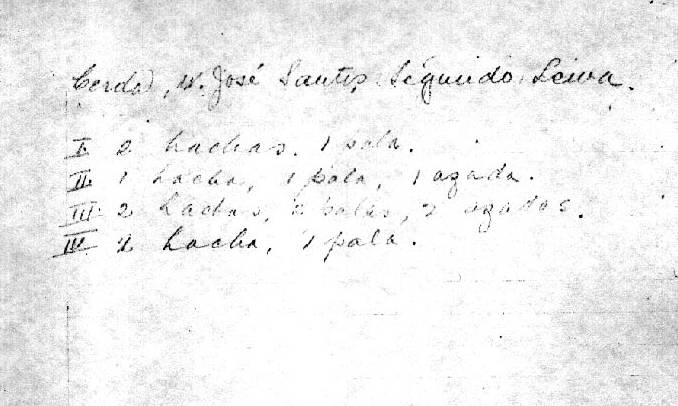 Cerda, W. José Santis, Segundo Leiva.
I 2 hachas. 1 pala.
II. 1 hacha, 1 pala, 1 azada.
III. 2 hachas, 2 palas, 2 azadas.
IV. 1 hacha, 1 pala.